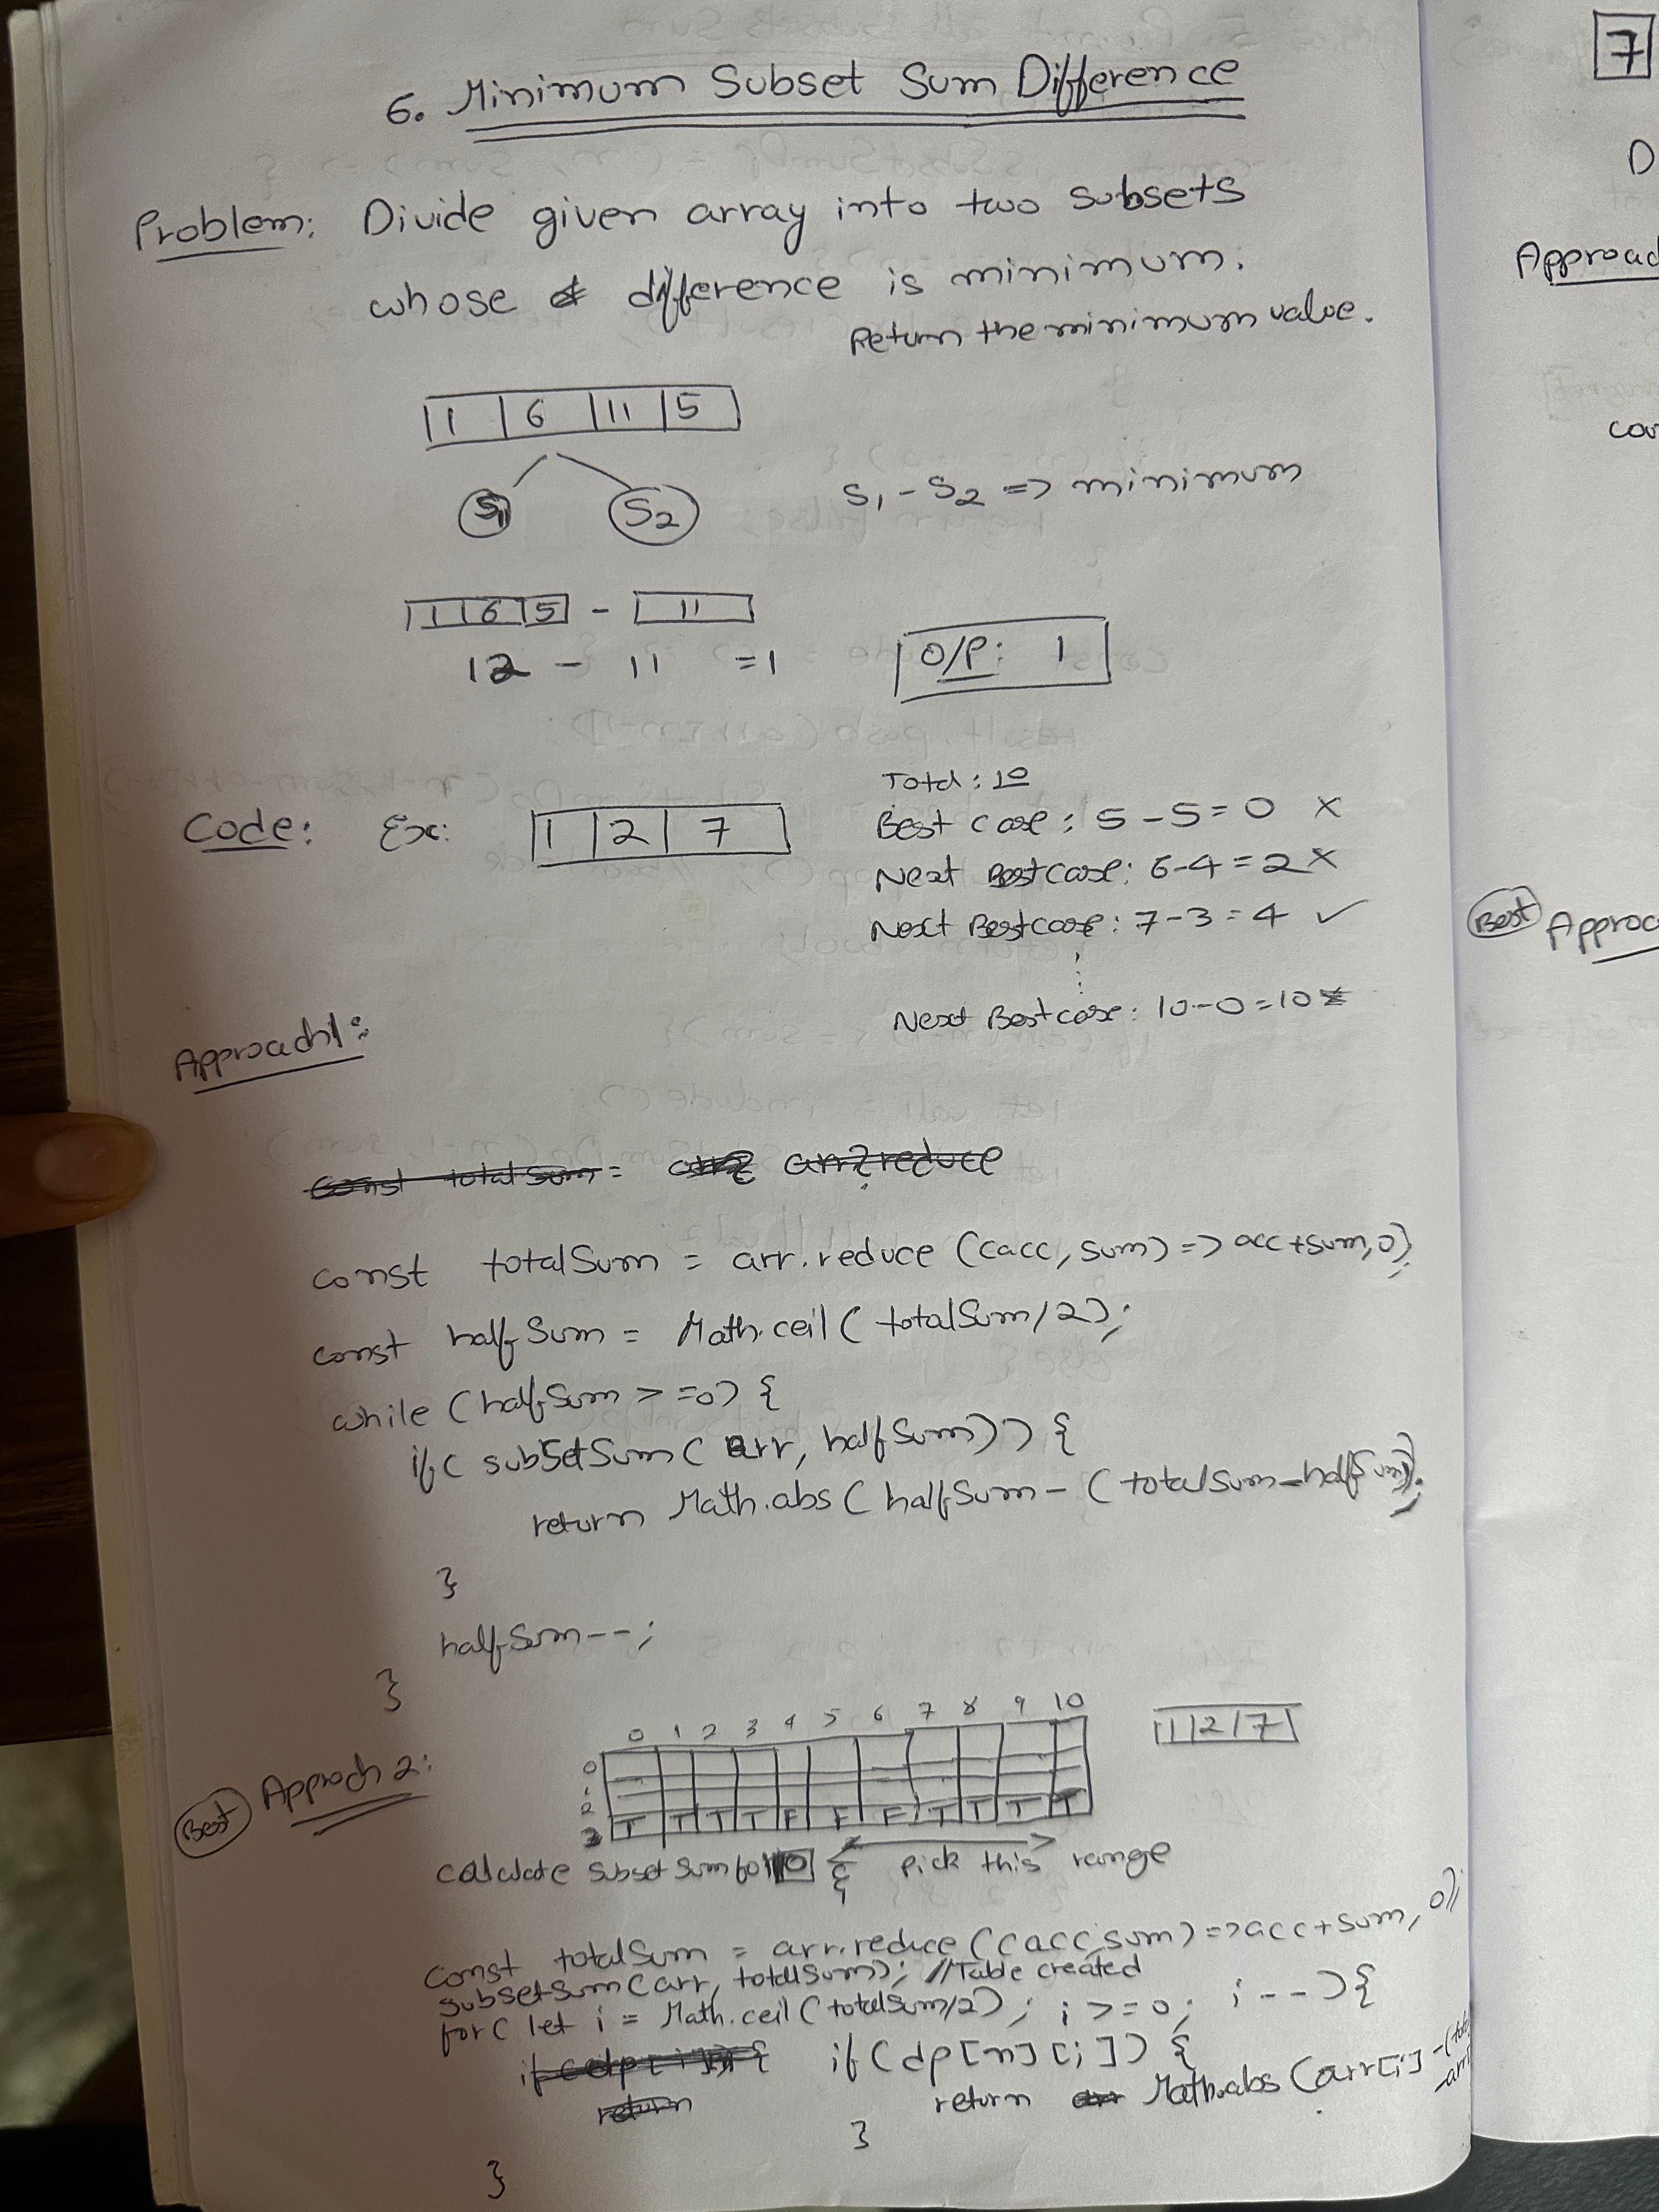 6. Minimum Subset Sum Difference
Problem: Divide given array into two subsets
whose difference is minimum.
Return the minimum value.
1 6 11 5
S1 S2
S1 - S2 => minimum
1 6 5 - 11
12 - 11 = 1
O/P: 1
Code: Ex: 1 2 7
Total: 10
Best case: 5 - 5 = 0 ×
Next Best case: 6-4 = 2 ×
Next Best case: 7-3 = 4 ✓
Next Best case: 10-0 = 10
Approach1:
const totalSum = arr.reduce
const totalSum = arr.reduce((acc, sum) => acc+sum, 0);
const halfSum = Math.ceil(totalSum/2);
while (halfSum >=0) {
if( subSetSum( arr, halfSum)) {
return Math.abs(halfSum - (totalSum-halfSum));
}
halfSum--;
}
Best Approch 2:
0 1 2 3 4 5 6 7 8 9 10
1 2 7
0
1
2
3 T T T T F F F T T T T
calculate subset sum for 10 & pick this range
const totalSum = arr.reduce((acc, sum) => acc+sum, 0);
subsetSum(arr, totalSum); //Table created
for( let i = Math.ceil(totalSum/2); i >=0; i--){
if(dp[n][i]) {
return Math.abs(arr[i] -(
}
}
7
D
Best